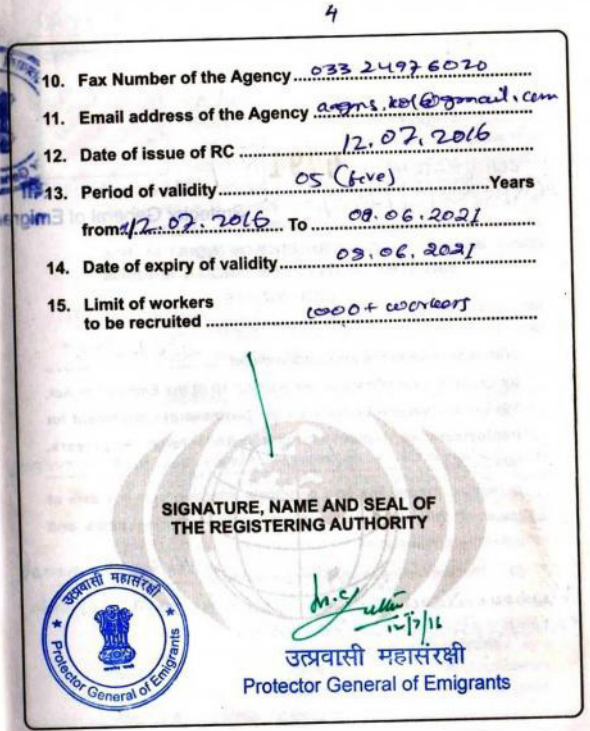 4
10. Fax Number of the Agency ..... 033 24976020
11. Email address of the Agency ..... @gmail.com
12. Date of issue of RC ..... 12.07.2016
13. Period of validity ..... 05 (five) ..... Years
from 12.07.2016 To 08.06.2021
14. Date of expiry of validity ..... 08.06.2021
15. Limit of workers
to be recruited ..... 1000+ workers
SIGNATURE, NAME AND SEAL OF
THE REGISTERING AUTHORITY
उत्प्रवासी महासंरक्षी
Protector General of Emigrants
12/7/16
उत्प्रवासी महासंरक्षी
Protector General of Emigrants